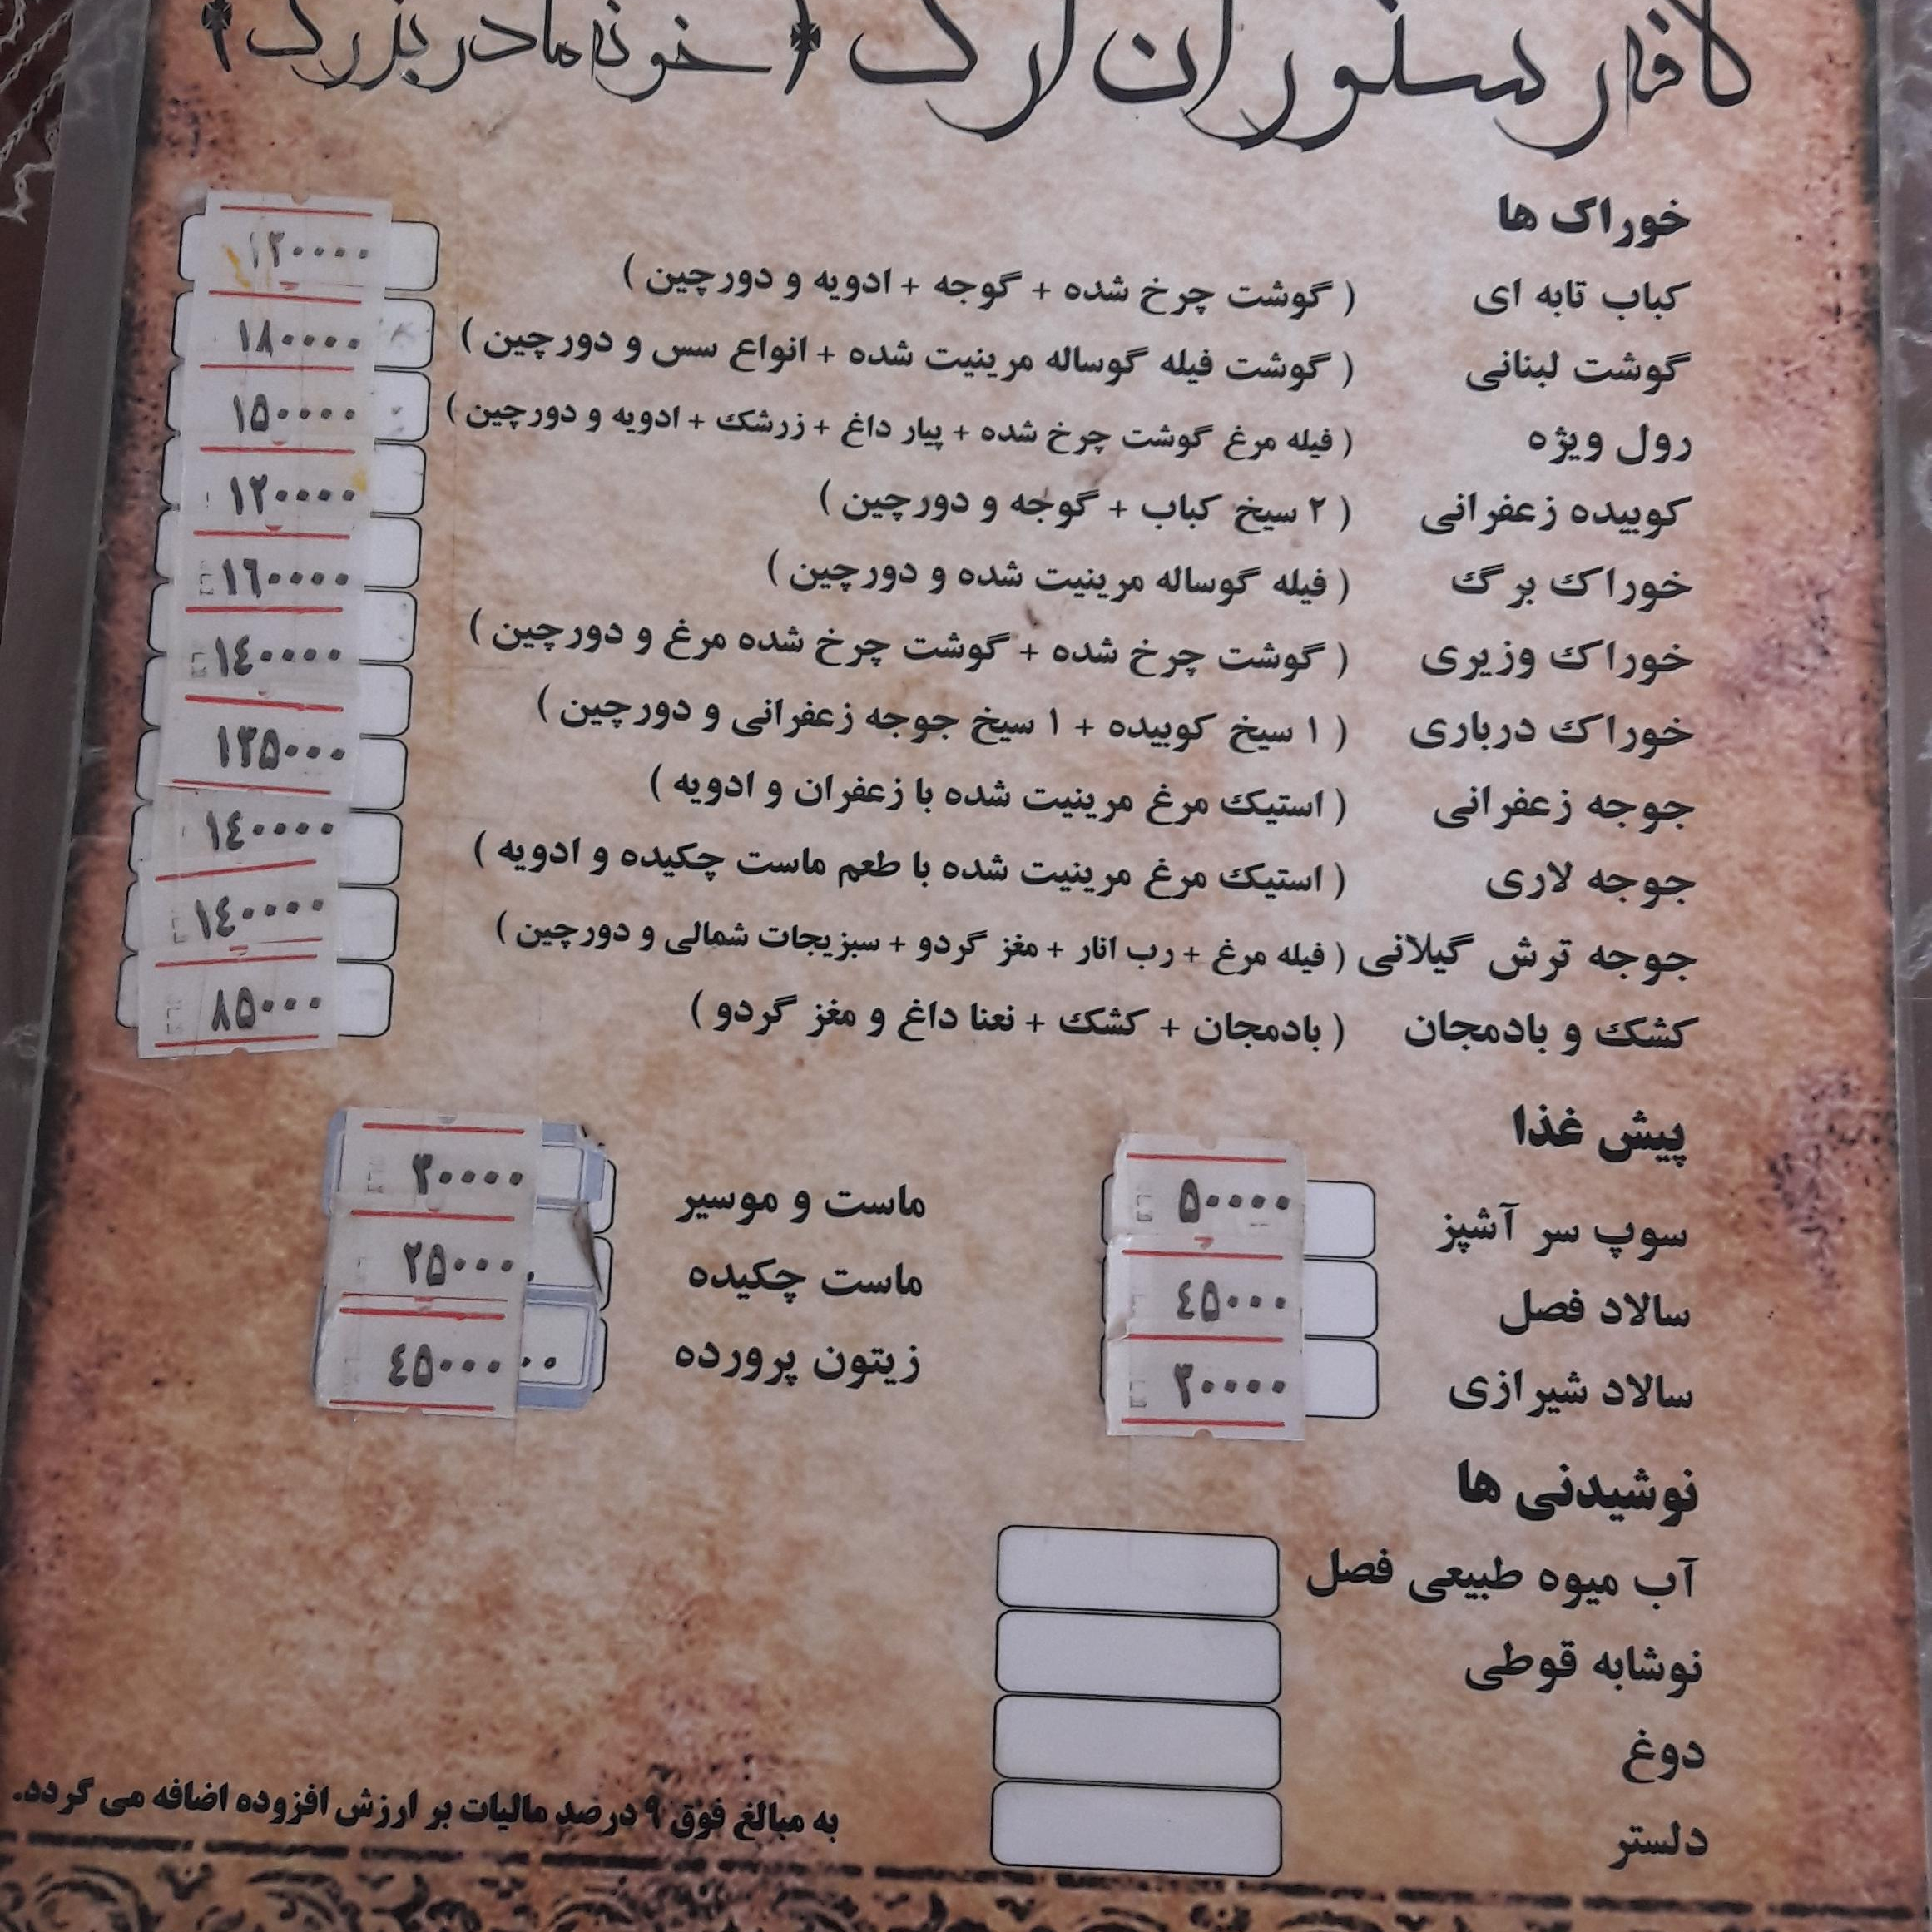 کافه رستوران ارگ (خونه مادر بزرگ)
خوراک ها
کباب تابه ای ( گوشت چرخ شده + گوجه + ادویه و دورچین ) ۱۳۰۰۰۰
گوشت لبنانی ( گوشت فیله گوساله مرینیت شده + انواع سس و دورچین ) ۱۸۰۰۰۰
رول ویژه ( فیله مرغ گوشت چرخ شده + پیار داغ + زرشک + ادویه و دورچین ) ۱۵۰۰۰۰
کوبیده زعفرانی ( ۲ سیخ کباب + گوجه و دورچین ) ۱۲۰۰۰۰
خوراک برگ ( فیله گوساله مرینیت شده و دورچین ) ۱٦۰۰۰۰
خوراک وزیری ( گوشت چرخ شده + گوشت چرخ شده مرغ و دورچین ) ۱٤۰۰۰۰
خوراک درباری ( ۱ سیخ کوبیده + ۱ سیخ جوجه زعفرانی و دورچین )
جوجه زعفرانی ( استیک مرغ مرینیت شده با زعفران و ادویه ) ۱۳۵۰۰۰
جوجه لاری ( استیک مرغ مرینیت شده با طعم ماست چکیده و ادویه ) ۱٤۰۰۰۰
جوجه ترش گیلانی ( فیله مرغ + رب انار + مغز گردو + سبزیجات شمالی و دورچین ) ۱٤۰۰۰۰
کشک و بادمجان ( بادمجان + کشک + نعنا داغ و مغز گردو ) ۸۵۰۰۰
پیش غذا
سوپ سر آشپز ۵۰۰۰۰ ماست و موسیر ۳۰۰۰۰
سالاد فصل ٤۵۰۰۰ ماست چکیده ۲۵۰۰۰
سالاد شیرازی ۳۰۰۰۰ زیتون پرورده ٤۵۰۰۰
نوشیدنی ها
آب میوه طبیعی فصل
نوشابه قوطی
دوغ
دلستر
به مبالغ فوق ۹ درصد مالیات بر ارزش افزوده اضافه می گردد.